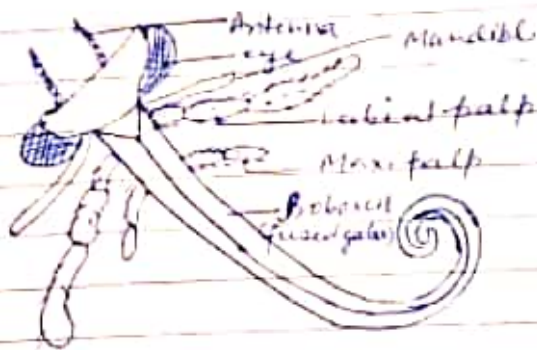 Antenna
eye
Mandibl
Labial palp
Maxi. palp
Proboscis
(fused galea)